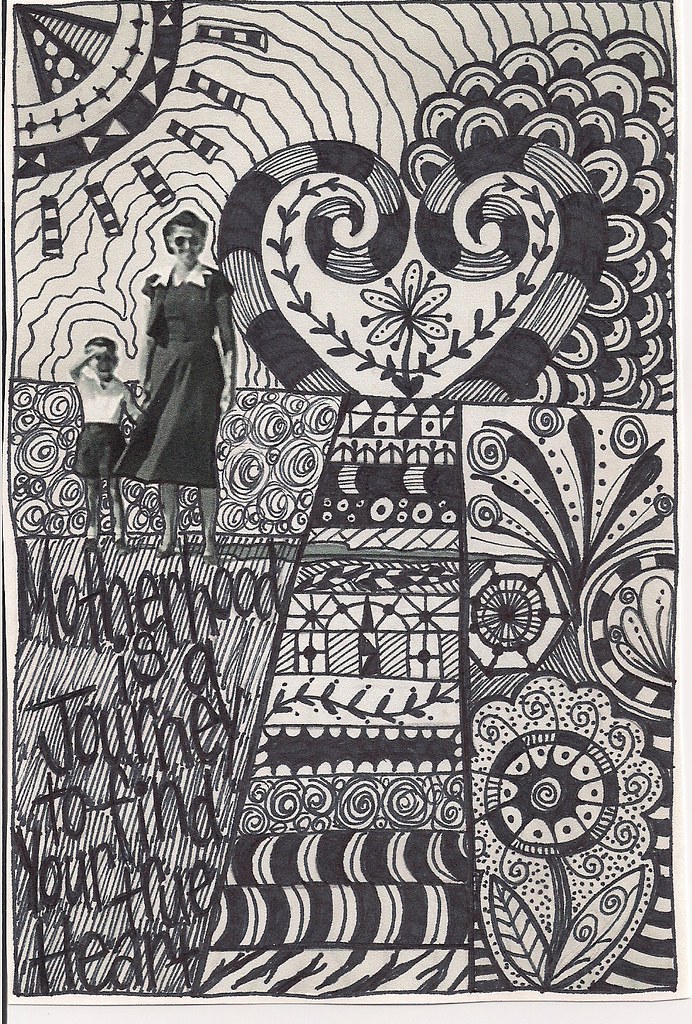 Motherhood
is a
Journey
to find
Your true
Heart